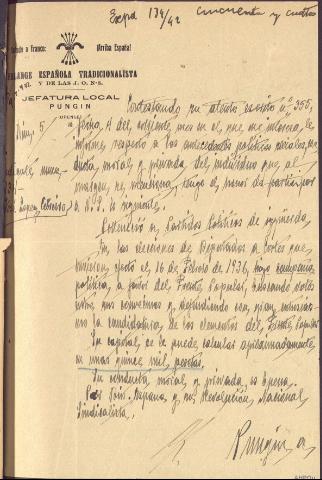 Expte 134/42
cincuenta y cuatro
Saludo a Franco: ¡Arriba España!
FALANGE ESPAÑOLA TRADICIONALISTA
Y DE LAS J. O. N-S.
JEFATURA LOCAL
PUNGIN
(ORENSE)
Núm. 5
Contestando su atento escrito nº 355,
fecha 4 del corriente mes en el que me interesa, le
informe respecto a los antecedentes políticos sociales,
conducta moral y privada del individuo que al
margen se relaciona, tengo el honor de participar
a V.S. lo siguiente.
Perteneció a Partidos Políticos de izquierda.
En las elecciones de Diputados a Cortes que
tuvieron efecto el 16 de Febrero de 1936, hizo campaña
política a favor del Frente Popular,
y defendiendo con gran
la candidatura de los elementos del Frente Popular
Su capital, se le puede calcular aproximadamente
en unas quince mil pesetas.
Su conducta moral y privada es buena.
Por Dios, España y su Revolución Nacional
Sindicalista,
Pungín, a